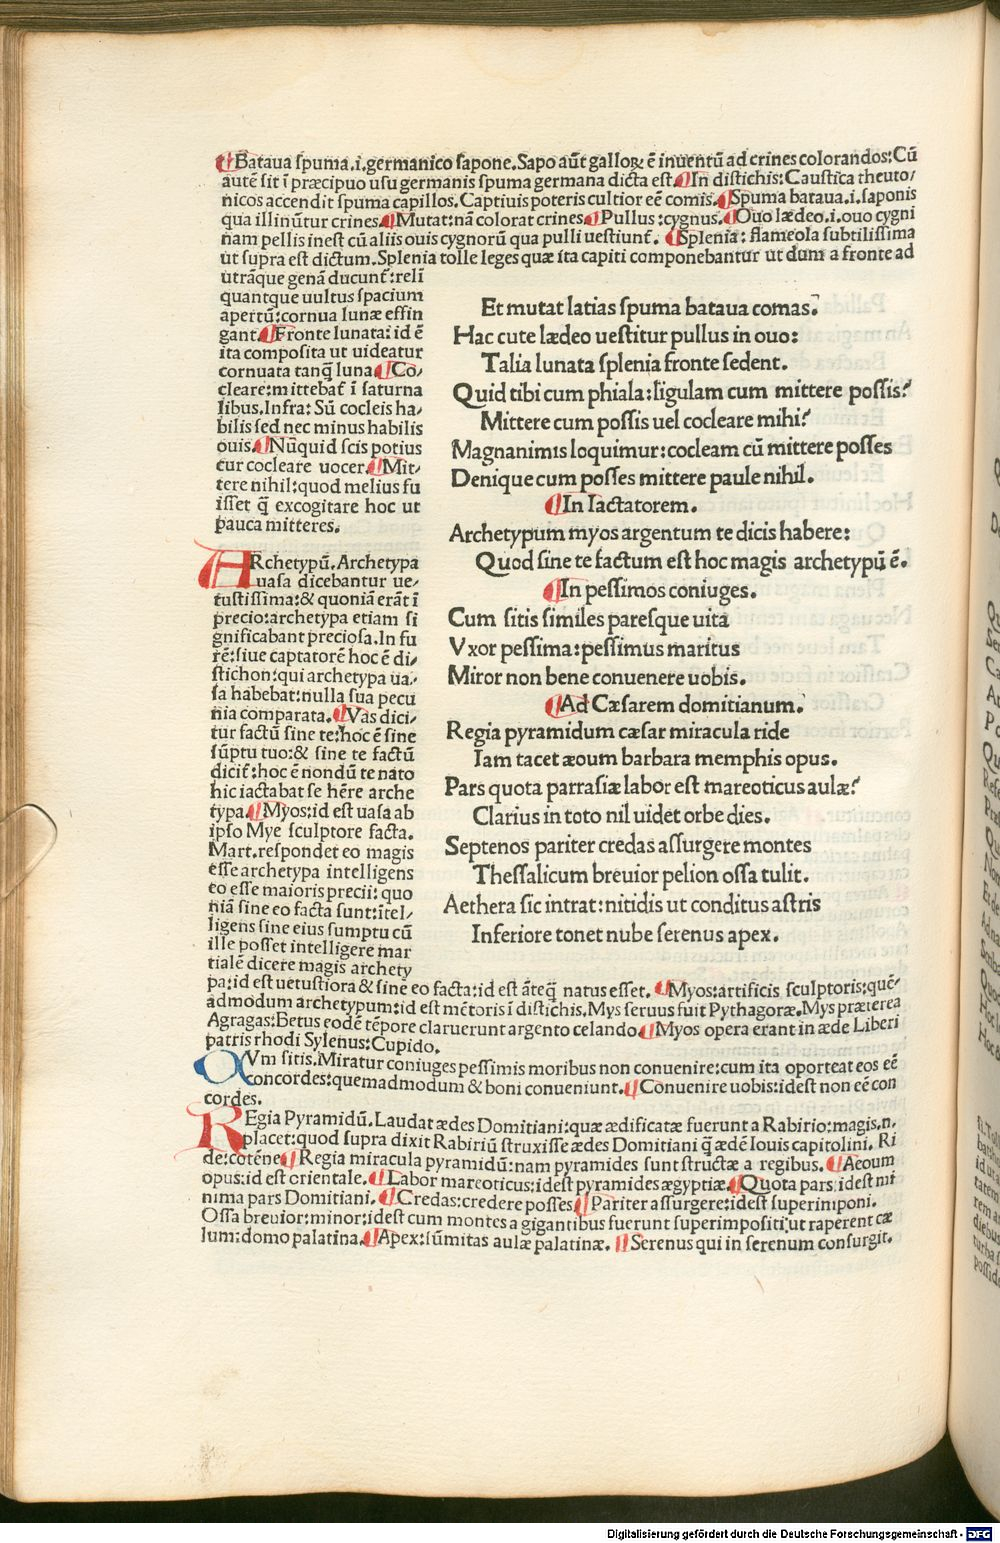 ¶Bataua ſpuma.i.germanico ſapone.Sapo aūt galloꝝ ē inuentū ad crines colorandos:Cū
autē ſit ī præcipuo uſu germanis ſpuma germana dicta eſt.¶In diſtichis:Cauſtica theuto/
nicos accendit ſpuma capillos.Captiuis poteris cultior eē comis.¶Spuma bataua.i.ſaponis
qua illinūtur crines.¶Mutat:nā colorat crines.¶Pullus:cygnus.¶Ouo lædeo.i.ouo cygni
nam pellis ineſt cū aliis ouis cygnorū qua pulli ueſtiunt̄. ¶Splenia: flameola ſubtiliſſima
ut ſupra eſt dictum.Splenia tolle leges quæ ita capiti componebantur ut dum a fronte ad
utrāque genā ducunt̄:reli
quantque uultus ſpacium
apertū:cornua lunæ effin
gant.¶Fronte lunata:id ē
ita compoſita ut uideatur
cornuata tanq̄ luna.¶Co/
cleare:mittebat̄ ī ſaturna
libus.Infra: Sū cocleis ha/
bilis ſed nec minus habilis
ouis.¶Nūquid ſcis potius
cur cocleare uocer.¶Mit/
tere nihil:quod melius fu
iſſet q̄ excogitare hoc ut
pauca mitteres.
ARchetypū.Archetypa
uaſa dicebantur ue/
tuſtiſſima:& quoniā erāt ī
precio:archetypa etiam ſi
gnificabant precioſa.In fu
rē:ſiue captatorē hoc ē di/
ſtichon:qui archetypa ua/
ſa habebat:nulla ſua pecu
nia comparata.¶Vas dici/
tur factū ſine te:hoc ē ſine
ſūptu tuo:& ſine te factū
dicit̄:hoc ē nondū te nato
hic iactabat ſe hēre arche
typa.¶Myos:id eſt uaſa ab
ipſo Mye ſculptore facta.
Mart.reſpondet eo magis
eſſe archetypa intelligens
eo eſſe maioris precii: quo
niā ſine eo facta ſunt:ītel/
ligens ſine eius ſumptu cū
ille poſſet intelligere mar
tialē dicere magis archety
Et mutat latias ſpuma bataua comas.
Hac cute lædeo ueſtitur pullus in ouo:
Talia lunata ſplenia fronte ſedent.
Quid tibi cum phiala:ligulam cum mittere poſſis?
Mittere cum poſſis uel cocleare mihi?
Magnanimis loquimur:cocleam cū mittere poſſes
Denique cum poſſes mittere paule nihil.
¶In Iactatorem.
Archetypum myos argentum te dicis habere:
Quod ſine te factum eſt hoc magis archetypū ē.
¶In peſſimos coniuges.
Cum ſitis ſimiles pareſque uita
Vxor peſſima:peſſimus maritus
Miror non bene conuenere uobis.
¶Ad Cæſarem domitianum.
Regia pyramidum cæſar miracula ride
Iam tacet æoum barbara memphis opus.
Pars quota parraſiæ labor eſt mareoticus aulæ?
Clarius in toto nil uidet orbe dies.
Septenos pariter credas aſſurgere montes
Theſſalicum breuior pelion oſſa tulit.
Aethera ſic intrat:nitidis ut conditus aſtris
Inferiore tonet nube ſerenus apex.
pa:id eſt uetuſtiora & ſine eo facta:id eſt āteq̄ natus eſſet. ¶Myos:artificis ſculptoris:quē/
admodum archetypum:id eſt mētoris ī diſtichis.Mys ſeruus fuit Pythagoræ.Mys præterea
Agragas:Betus eodē tēpore claruerunt argento celando.¶Myos opera erant in æde Liberi
patris rhodi Sylenus:Cupido.
QVm ſitis.Miratur coniuges peſſimis moribus non conuenire:cum ita oporteat eos eē
concordes:quemadmodum & boni conueniunt.¶Conuenire uobis:ideſt non eē con
cordes.
REgia Pyramidū.Laudat ædes Domitiani:quæ ædificatæ fuerunt a Rabirio:magis.n.
placet:quod ſupra dixit Rabiriū ſtruxiſſe ædes Domitiani q̄ ædē Iouis capitolini. Ri
de:cōtēne¶Regia miracula pyramidū:nam pyramides ſunt ſtructæ a regibus.¶Aeoum
opus:id eſt orientale.¶Labor mareoticus:ideſt pyramides ægyptiæ.¶Quota pars:ideſt mi
nima pars Domitiani.¶Credas:credere poſſes¶Pariter aſſurgere:ideſt ſuperimponi.
Oſſa breuior:minor:ideſt cum montes a gigantibus fuerunt ſuperimpoſiti:ut raperent cæ
lum:domo palatina.¶Apex:ſūmitas aulæ palatinæ. ¶Serenus qui in ſerenum conſurgit.
Digitalisierung gefördert durch die Deutsche Forschungsgemeinschaft - DFG